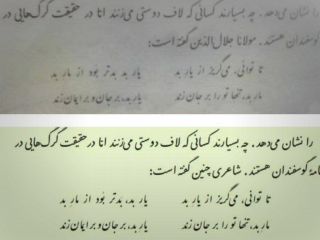 را نشان می‌دهد. چه بسیارند کسانی که لاف دوستی می‌زنند اما در حقیقت گرگ‌هایی در
گوسفندان هستند. مولانا جلال‌الدین گفته است:
تا توانی، می‌گریز از یار بد یار بد بدتر بود از مار بد
مار بد، تنها تو را بر جان زند یار بد، بر جان و بر ایمان زند
را نشان می‌دهد. چه بسیارند کسانی که لاف دوستی می‌زنند اما در حقیقت گرگ‌هایی در
گوسفندان هستند. شاعری چنین گفته است:
تا توانی، می‌گریز از یار بد یار بد، بدتر بود از مار بد
مار بد، تنها تو را بر جان زند یار بد، بر جان و بر ایمان زند